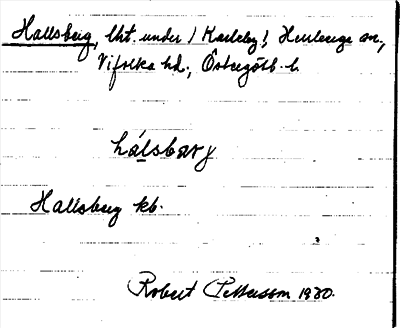 Hallsberg, lht. under 1 Karleby!, Herrberga sn,
Vifolka hd., Östergötl. l.
hálsbarj
Hallsberg kb.
Robert Pettersson 1930.